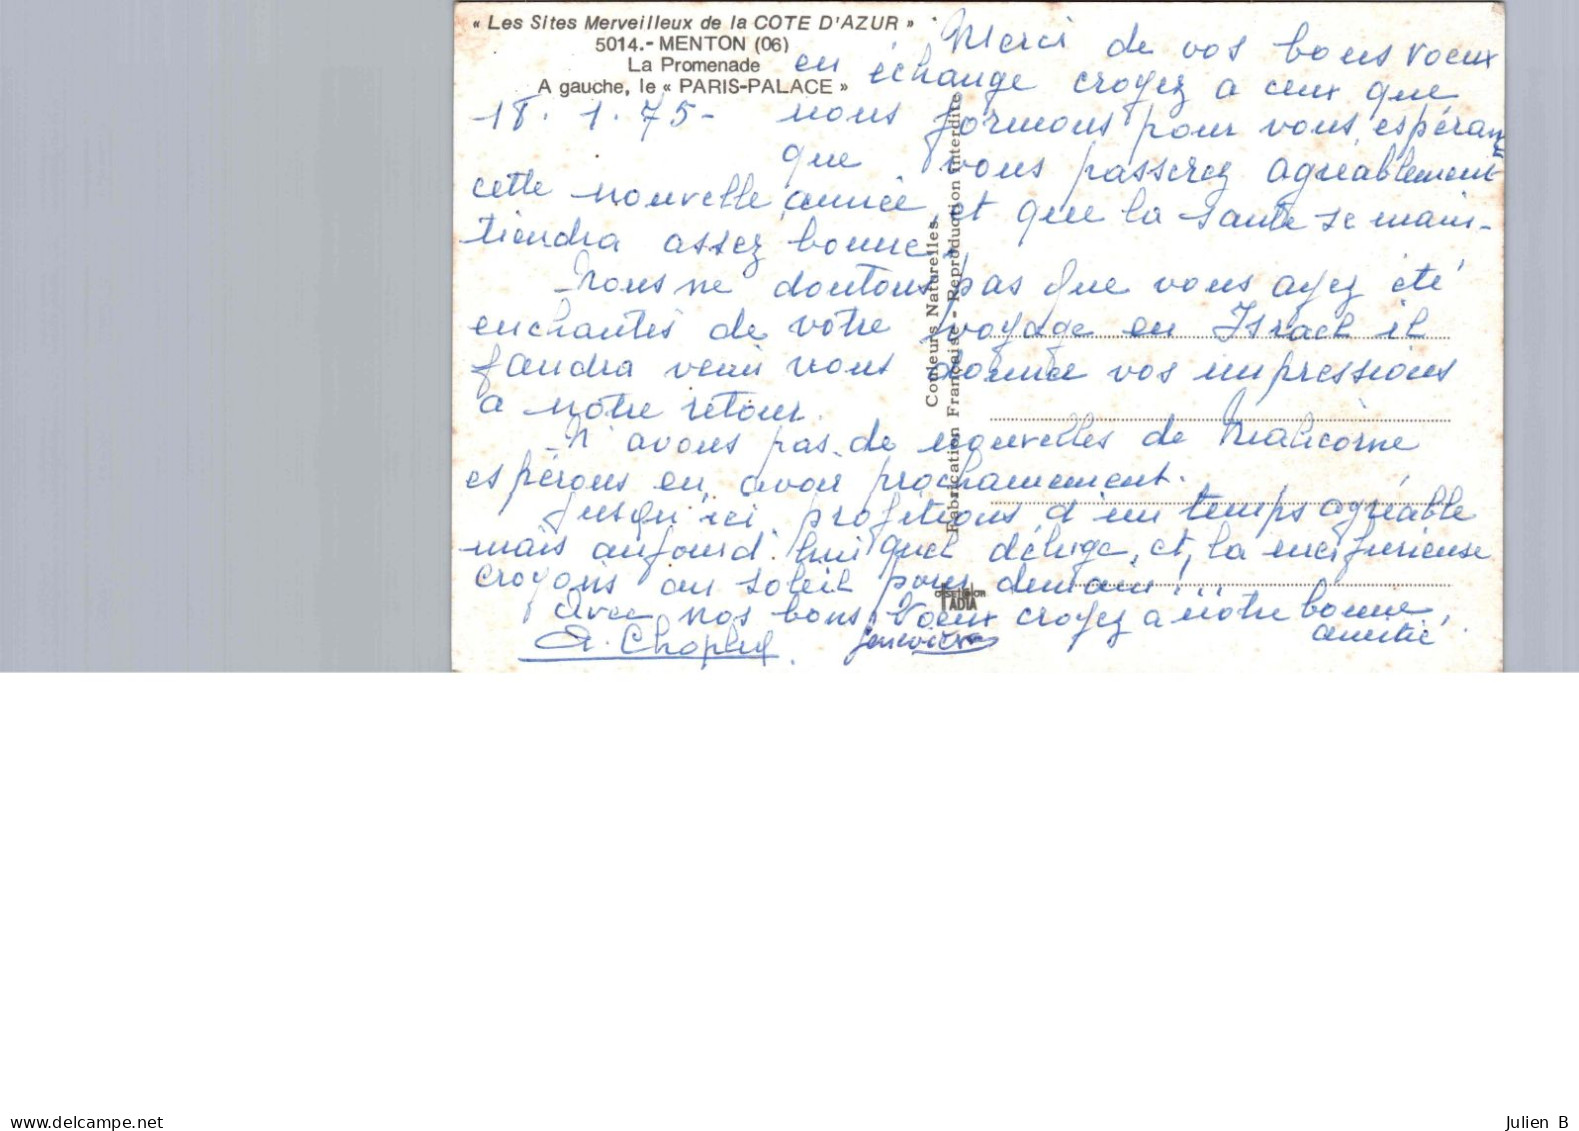 « Les Sites Merveilleux de la COTE D'AZUR »
5014.- MENTON (06)
La Promenade
A gauche, le « PARIS-PALACE »
18. 1. 75-
Merci de vos bons voeux
en échange croyez a ceux que
nous formons pour vous, espérant
que vous passerez agréablement
cette nouvelle année et que la santé se main-
tiendra assez bonne.
Nous ne doutons pas que vous ayez été
enchantés de votre voyage en Israel il
faudra venir nous donner vos impressions
a notre retour.
N'avons pas de nouvelles de Malicorne
espérons en avoir prochainement.
Jusqu'ici profitions d'un temps agréable
mais aujourd'hui quel déluge, et la mer furieuse
croyons au soleil pour demain!...
Avec nos bons Voeux croyez a notre bonne
amitié.
Geneviève
Couleurs Naturelles.
Fabrication Française - Reproduction interdite
TADIA
www.delcampe.net
Julien B